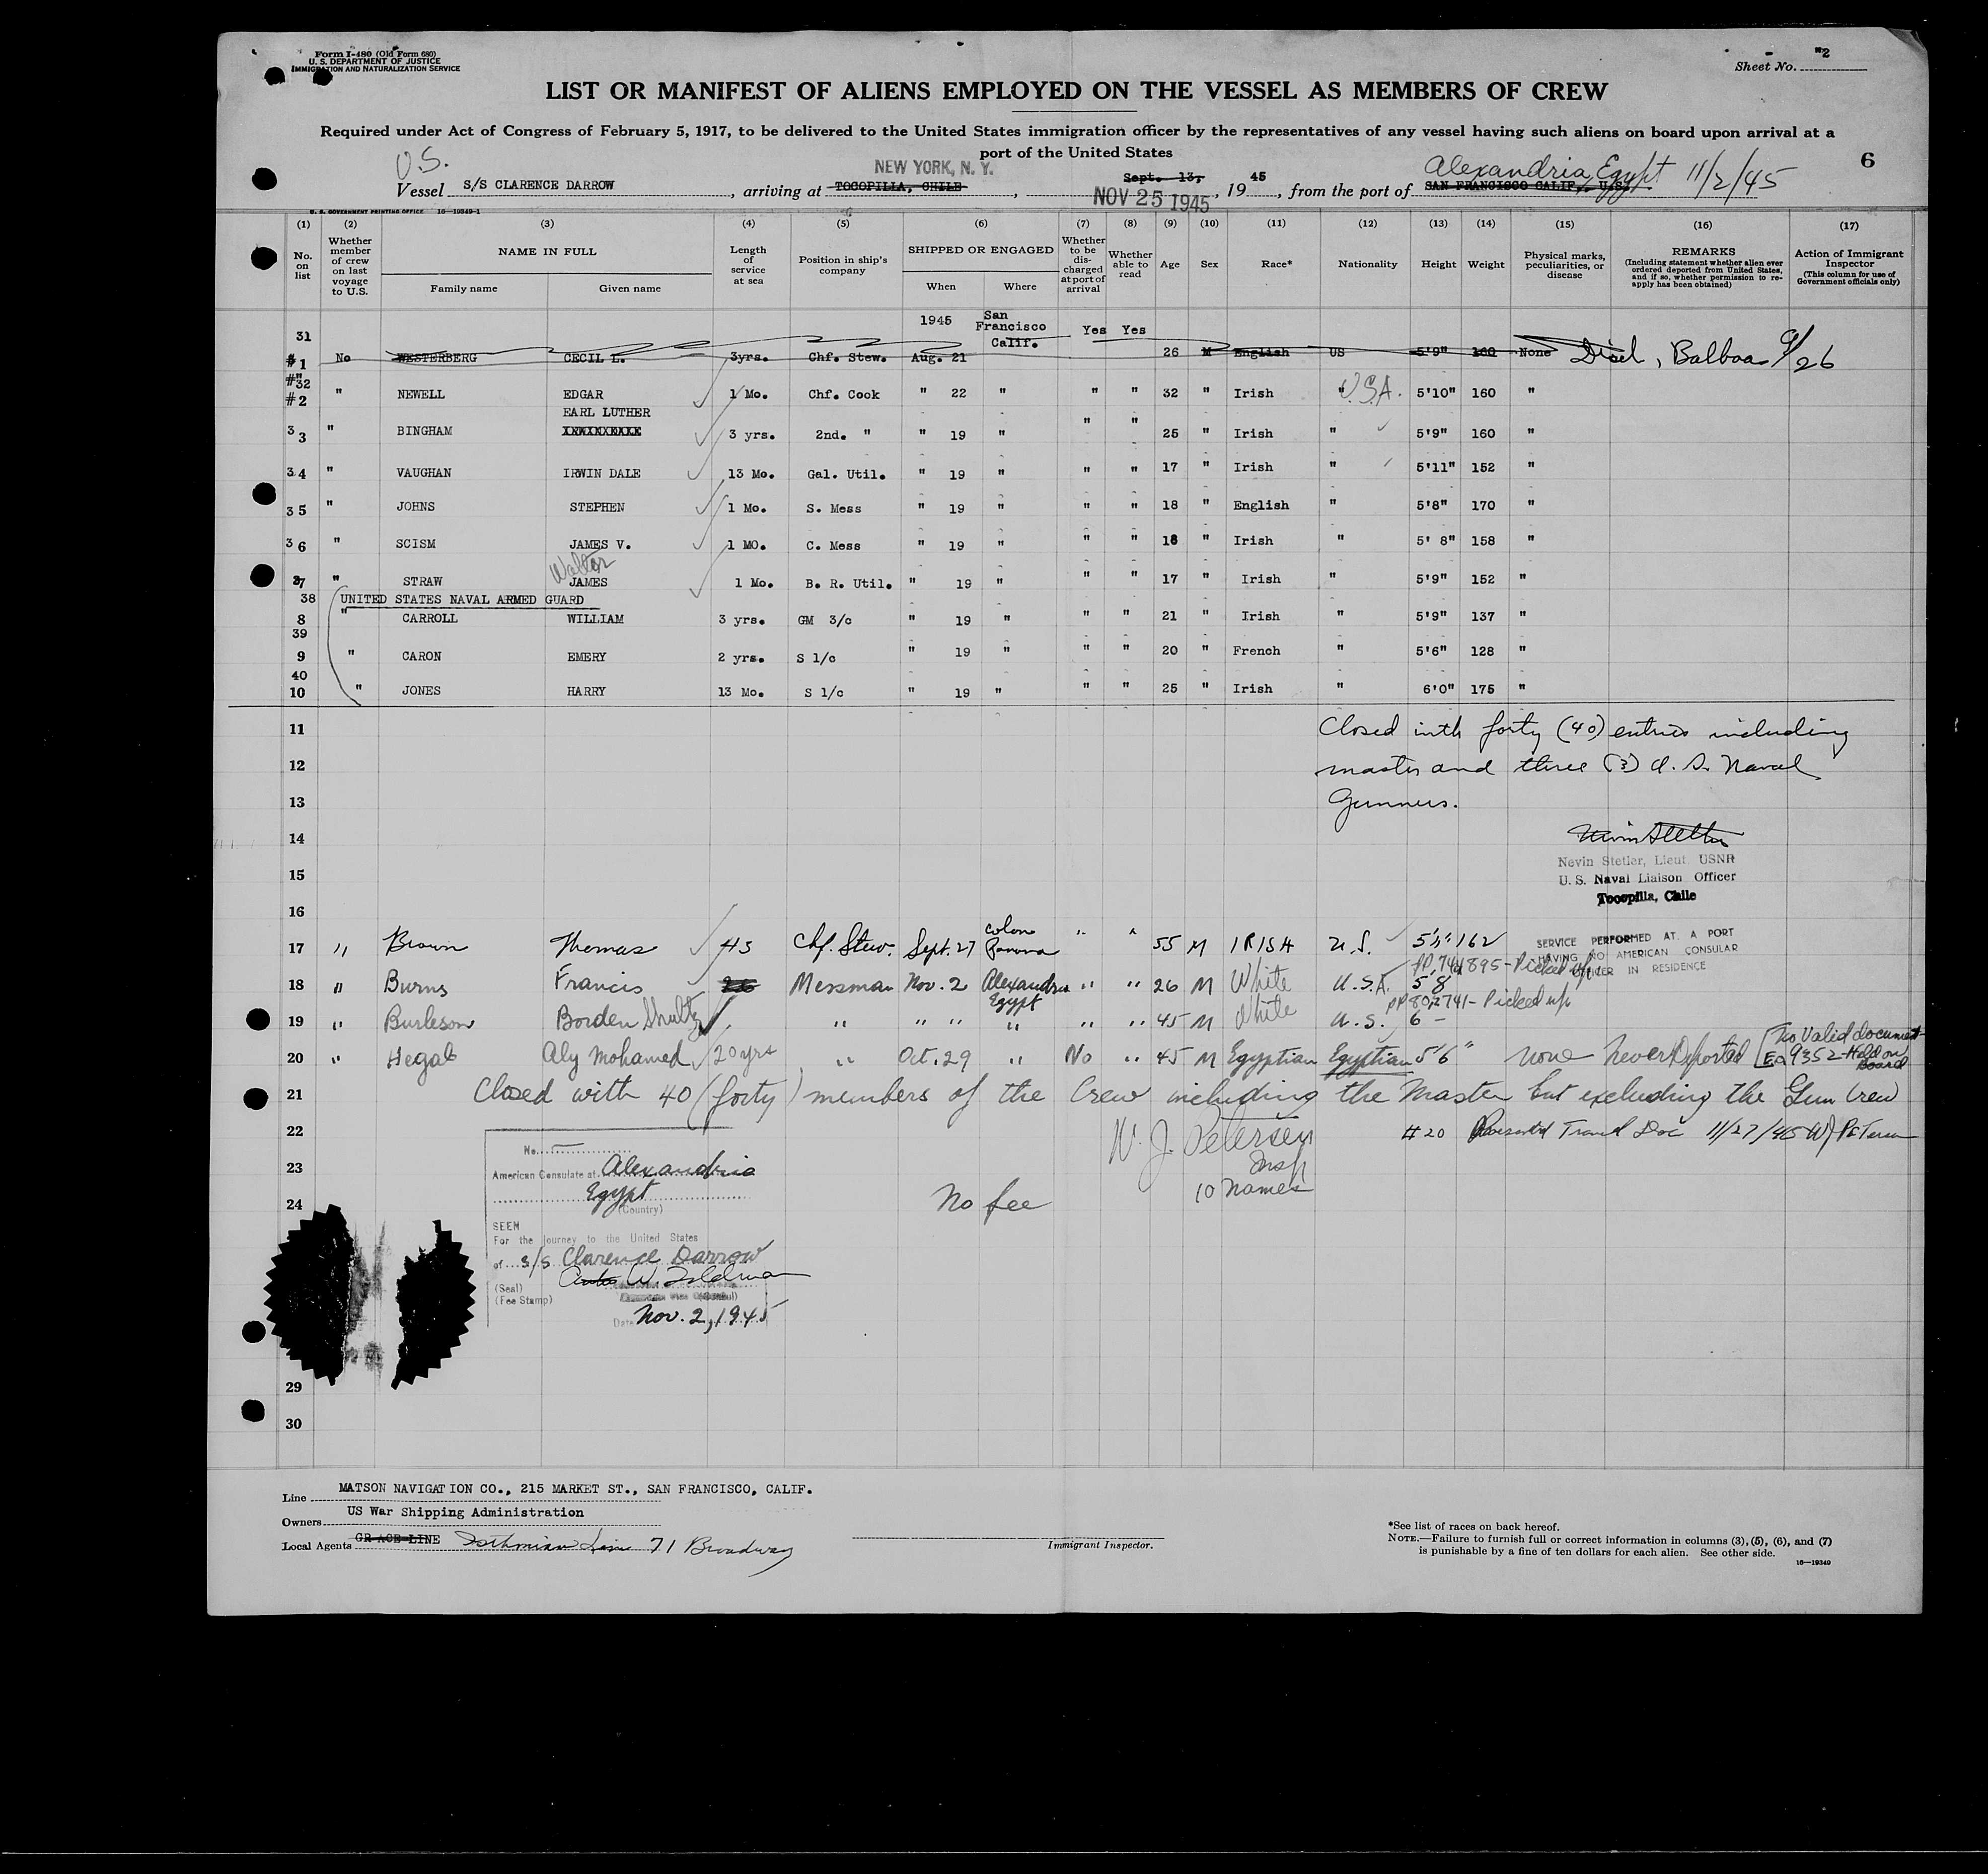 Form I-480 (Old Form 680)
U. S. DEPARTMENT OF JUSTICE
IMMIGRATION AND NATURALIZATION SERVICE
Sheet No. #2
LIST OR MANIFEST OF ALIENS EMPLOYED ON THE VESSEL AS MEMBERS OF CREW
Required under Act of Congress of February 5, 1917, to be delivered to the United States immigration officer by the representatives of any vessel having such aliens on board upon arrival at a
port of the United States
6
U.S. NEW YORK, N. Y. Alexandria, Egypt 11/2/45
Vessel S/S CLARENCE DARROW, arriving at TOCOPILLA, CHILE, Sept. 13, NOV 25 1945, 1945, from the port of SAN FRANCISCO CALIF., U.S.
U. S. GOVERNMENT PRINTING OFFICE 16-19349-1
(1) (2) (3) (4) (5) (6) (7) (8) (9) (10) (11) (12) (13) (14) (15) (16) (17)
No. on list
Whether member of crew on last voyage to U.S.
NAME IN FULL
Family name
Given name
Length of service at sea
Position in ship's company
SHIPPED OR ENGAGED
When
Where
Whether to be discharged at port of arrival
Whether able to read
Age
Sex
Race*
Nationality
Height
Weight
Physical marks, peculiarities, or disease
REMARKS
(Including statement whether alien ever ordered deported from United States, and if so, whether permission to reapply has been obtained)
Action of Immigrant Inspector
(This column for use of Government officials only)
31 1945 San Francisco Calif. Yes Yes
#1 No WESTERBERG CECIL L. 3yrs. Chf. Stew. Aug. 21 26 M English US 5'9" 160 None Disch, Balboa 9/26
#32
#2 " NEWELL EDGAR 1 Mo. Chf. Cook " 22 " " " 32 " Irish U.S.A. 5'10" 160 "
EARL LUTHER
33 " BINGHAM IRWIN DALE 3 yrs. 2nd. " " 19 " " " 25 " Irish " 5'9" 160 "
34 " VAUGHAN IRWIN DALE 13 Mo. Gal. Util. " 19 " " " 17 " Irish " 5'11" 152 "
35 " JOHNS STEPHEN 1 Mo. S. Mess " 19 " " " 18 " English " 5'8" 170 "
36 " SCISM JAMES V. 1 MO. C. Mess " 19 " " " 18 " Irish " 5' 8" 158 "
Walter
37 " STRAW JAMES 1 Mo. B. R. Util. " 19 " " " 17 " Irish " 5'9" 152 "
38 UNITED STATES NAVAL ARMED GUARD
8 " CARROLL WILLIAM 3 yrs. GM 3/c " 19 " " " 21 " Irish " 5'9" 137 "
39
9 " CARON EMERY 2 yrs. S 1/c " 19 " " " 20 " French " 5'6" 128 "
40
10 " JONES HARRY 13 Mo. S 1/c " 19 " " " 25 " Irish " 6'0" 175 "
11 Closed with forty (40) entries including
12 master and three (3) U. S. Naval
13 Gunners.
14 Nevin Stetler
Nevin Stetler, Lieut. USNR
15 U. S. Naval Liaison Officer
Tocopilla, Chile
16
17 " Brown Thomas 43 Chf. Stew. Sept. 27 Colon Panama " " 55 M IRISH U.S. 5'11" 162
SERVICE PERFORMED AT A PORT
HAVING NO AMERICAN CONSULAR
OFFICER IN RESIDENCE
PP 744895 - Picked up
18 " Burns Francis 26 Messman Nov. 2 Alexandria Egypt " " 26 M White U.S.A. 5 8
PP 802741 - Picked up
19 " Burleson Borden Shultz " " " " " " 45 M White U.S. 6 -
20 " Hegab Aly Mohamed 20 yrs " Oct. 29 " No " 45 M Egyptian Egyptian 5'6" none never deported [No Valid document EO 9352 Held on Board
21 Closed with 40 (forty) members of the Crew including the Master but excluding the Gun Crew
22 W. J. Petersen #20 Presented Travel Doc 11/27/45 WJ Petersen
Insp
23
24 No fee 10 names
No.
American Consulate at Alexandria
Egypt
(Country)
SEEN
For the journey to the United States
of S/S Clarence Darrow
(Seal)
(Fee Stamp)
Date Nov. 2, 1945
29
30
Line MATSON NAVIGATION CO., 215 MARKET ST., SAN FRANCISCO, CALIF.
Owners US War Shipping Administration
Local Agents GRACE LINE Isthmian Line 71 Broadway
Immigrant Inspector.
*See list of races on back hereof.
NOTE.—Failure to furnish full or correct information in columns (3), (5), (6), and (7)
is punishable by a fine of ten dollars for each alien. See other side.
16-19349